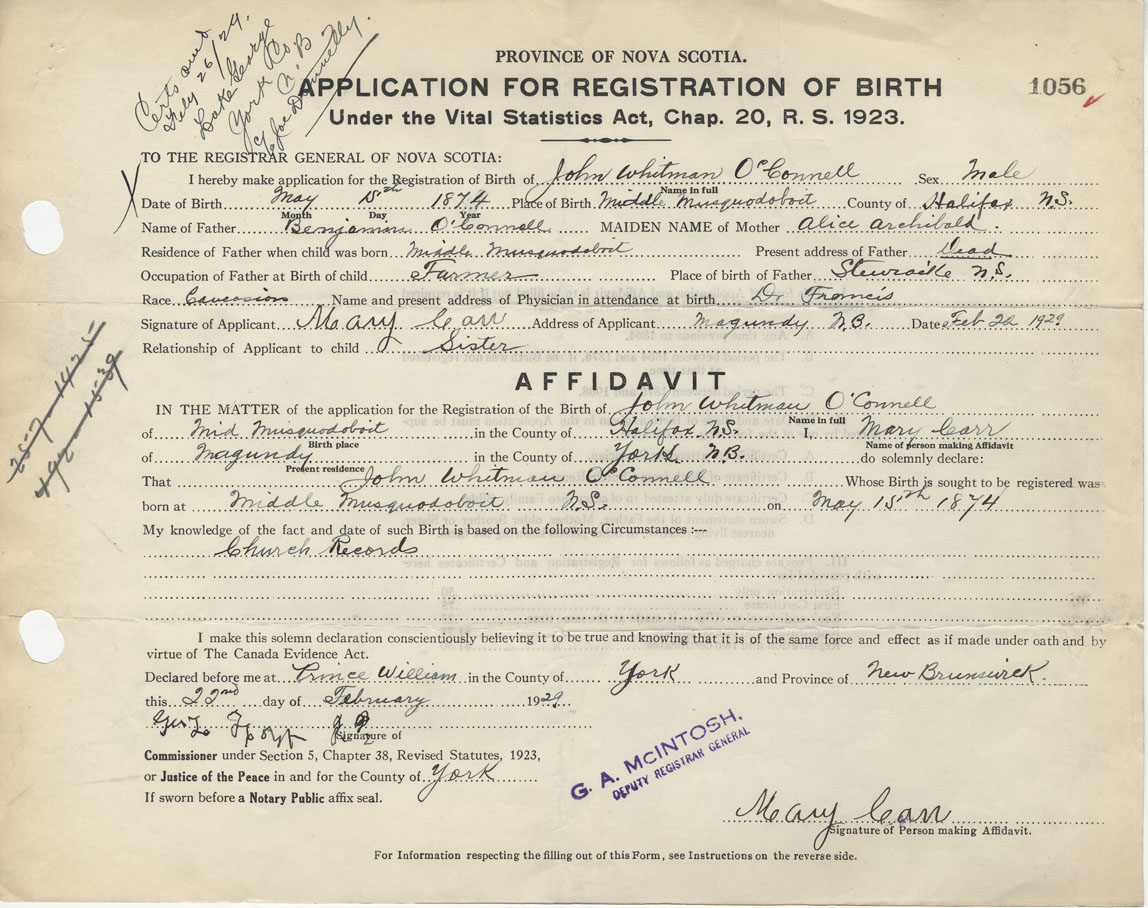 Certs out
Feby 26/29.
Lake George
York Co
N.B
c/o Joe Donnelly.
PROVINCE OF NOVA SCOTIA.
APPLICATION FOR REGISTRATION OF BIRTH
1056
Under the Vital Statistics Act, Chap. 20, R. S. 1923.
TO THE REGISTRAR GENERAL OF NOVA SCOTIA:
I hereby make application for the Registration of Birth of John Whitman O'Connell Sex Male
Name in full
Date of Birth May 15th 1874 Place of Birth Middle Musquodoboit County of Halifax N.S.
Month Day Year
Name of Father Benjamin O'Connell MAIDEN NAME of Mother Alice Archibald.
Residence of Father when child was born Middle Musquodoboit Present address of Father Dead
Occupation of Father at Birth of child Farmer Place of birth of Father Stewiacke N.S.
Race Caucasion Name and present address of Physician in attendance at birth Dr. Francis
Signature of Applicant Mary Carr Address of Applicant Magundy N.B. Date Feb 22 1929
Relationship of Applicant to child Sister
AFFIDAVIT
IN THE MATTER of the application for the Registration of the Birth of John Whitman O'Connell
Name in full
of Mid Musquodoboit in the County of Halifax N.S. I, Mary Carr
Birth place Name of person making Affidavit
of Magundy in the County of York N.B. do solemnly declare:
Present residence
That John Whitman O'Connell Whose Birth is sought to be registered was
born at Middle Musquodoboit N.S. on May 15th 1874
My knowledge of the fact and date of such Birth is based on the following Circumstances :--
Church Records
I make this solemn declaration conscientiously believing it to be true and knowing that it is of the same force and effect as if made under oath and by
virtue of The Canada Evidence Act.
Declared before me at Prince William in the County of York and Province of New Brunswick.
this 22nd day of February 1929
J P
Signature of
Commissioner under Section 5, Chapter 38, Revised Statutes, 1923,
or Justice of the Peace in and for the County of York
If sworn before a Notary Public affix seal.
G. A. McINTOSH.
DEPUTY REGISTRAR GENERAL
Mary Carr
Signature of Person making Affidavit.
For Information respecting the filling out of this Form, see Instructions on the reverse side.